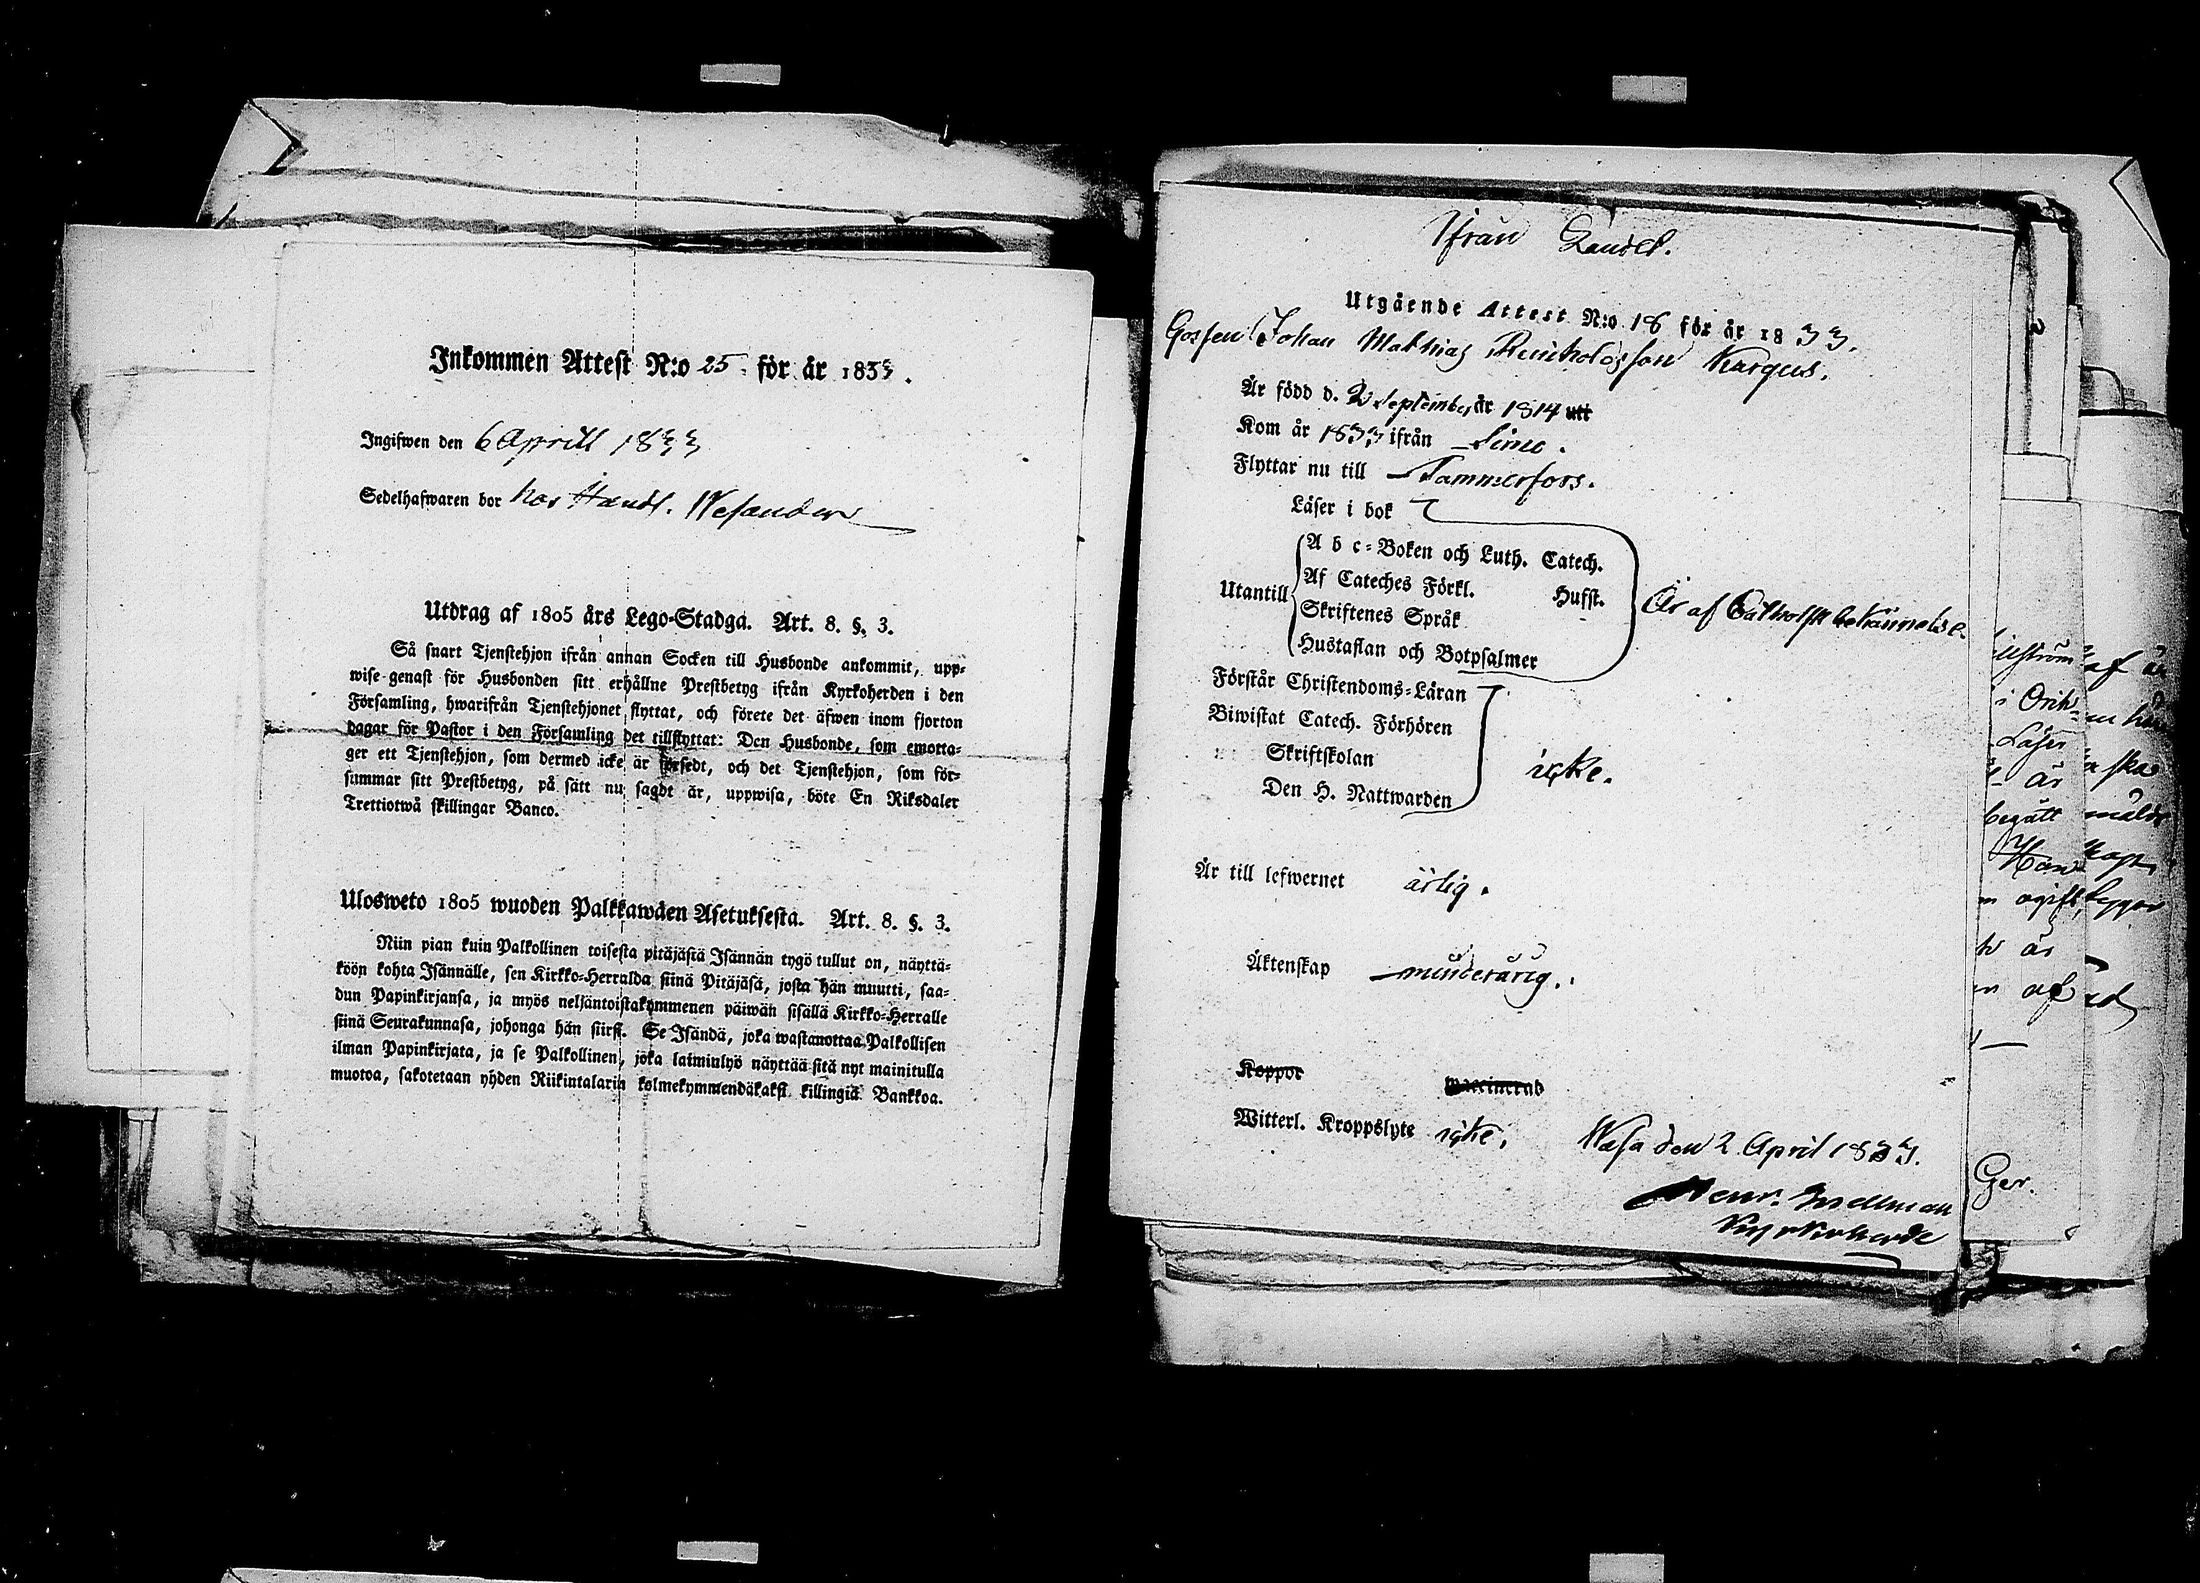 Inkommen Attest N:o 25 för år 1833.
Ingifwen den 6 Aprill 1833
Sedelhafwaren bor hos Handl. Wesander
Utdrag af 1805 års Lego-Stadga. Art. 8. §. 3.
Så snart Tjenstehjon ifrån annan Socken till Husbonde ankommit, upp-
wise genast för Husbonden sitt erhållne Prestbetyg ifrån Kyrkoherden i den
Församling, hwarifrån Tjenstehjonet flyttat, och förete det äfwen inom fjorton
dagar för Pastor i den Församling det tillflyttat: Den Husbonde, som emotta-
ger ett Tjenstehjon, som dermed icke är försedt, och det Tjenstehjon, som för-
summar sitt Prestbetyg, på sätt nu sagdt är, uppwisa, böte En Riksdaler
Trettiotwå skillingar Banco.
Ulosweto 1805 wuoden Palkkawäen Asetuksesta. Art. 8. §. 3.
Niin pian kuin Palkollinen toisesta pitäjästä Isännän tygö tullut on, näyttä-
köön kohta Isännälle, sen Kirkko-Herralda siinä Pitäjäsä, josta hän muutti, saa-
dun Papinkirjansa, ja myös neljäntoistakymmenen päiwän sisällä Kirkko-Herralle
siinä Seurakunnasa, johonga hän siirsi. Se Isändä, joka wastanottaa Palkollisen
ilman Papinkirjata, ja se Palkollinen, joka laiminlyö näyttää sitä nyt mainitulla
muotoa, sakotetaan yhden Riikintalarin kolmekymmendäkaksi killingiä Bankkoa.
Ifrån
Utgående Attest N:o 18 för år 1833.
Gossen Johan Mathias Reinholdsson Kargus.
Är född d. 2 September år 1814 utt
Kom år 1833 ifrån
Flyttar nu till Tammerfors.
Läser i bok
A b c-Boken och Luth. Catech.
Af Cateches Förkl. Husst.
Utantill
Skriftenes Språk
Är af Catholsk bekännelse.
Hustaflan och Botpsalmer
Förstår Christendoms-Läran
Biwistat Catech. Förhören
Skriftskolan
icke.
Den H. Nattwarden
Är till lefwernet ärlig.
Äktenskap minderårig.
Koppor waccinerad
Witterl. Kroppslyte icke.
Wasa den 2 April 1833.
Kyrkoherde
i
Läser
är
begått
Han
är
af
Ger.
af